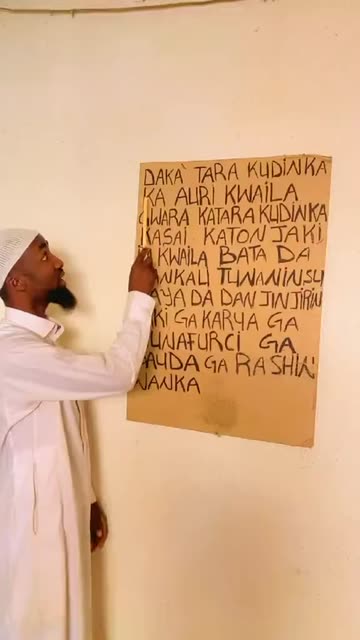 DAKA TARA KUDINKA
KA AURI KWAILA
GWARA KATARA KUDINKA
KASAI KATON JAKI
KWAILA BATA DA
TUWANINSU
DA DAN JINJIRIN
GA KARYA GA
MUNAFURCI GA
GA RASHIN
WANKA